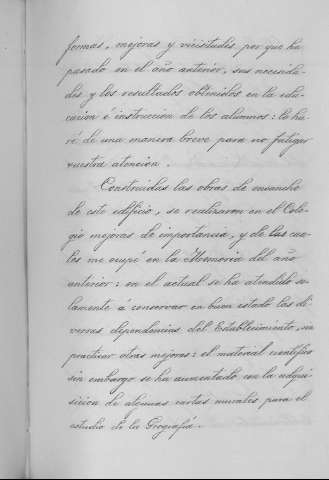 formas, mejoras y vicisitudes por que ha
pasado en el año anterior, sus necesida-
des y los resultados obtenidos en la edu-
cacion é instruccion de los alumnos: lo ha-
ré de una manera breve para no fatigar
vuestra atencion.
Construidas las obras de ensanche
de este edificio, se realizaron en el Cole-
gio mejoras de importancia, y de las cua-
les me ocupé en la Memoria del año
anterior: en el actual se ha atendido so-
lamente á conservar en buen estado las di-
versas dependencias del Establecimiento, sin
practicar otras mejoras: el material científico
sin embargo se ha aumentado con la adqui-
sicion de algunas cartas murales para el
estudio de la Geografía.